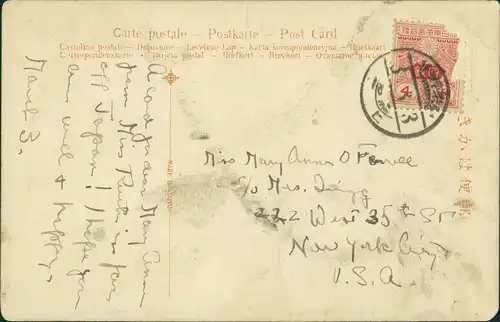 Carte postale - Postkarte - Post Card
Cartolina postale - Dopisnice - Levelezö-Lap - Karta korespondencyjna - Briefkaart
Correspondenzkarte - Tarjeta postal - Brefkort - Brevkort
郵便はかき
A card for dear Mary Anne
from Miss in far
off Japan! I hope you
are well & happy.
March 3.
Miss Mary Anne O'Ferrell
c/o Mrs.
222 West 35th St
New York City
U.S.A.
4